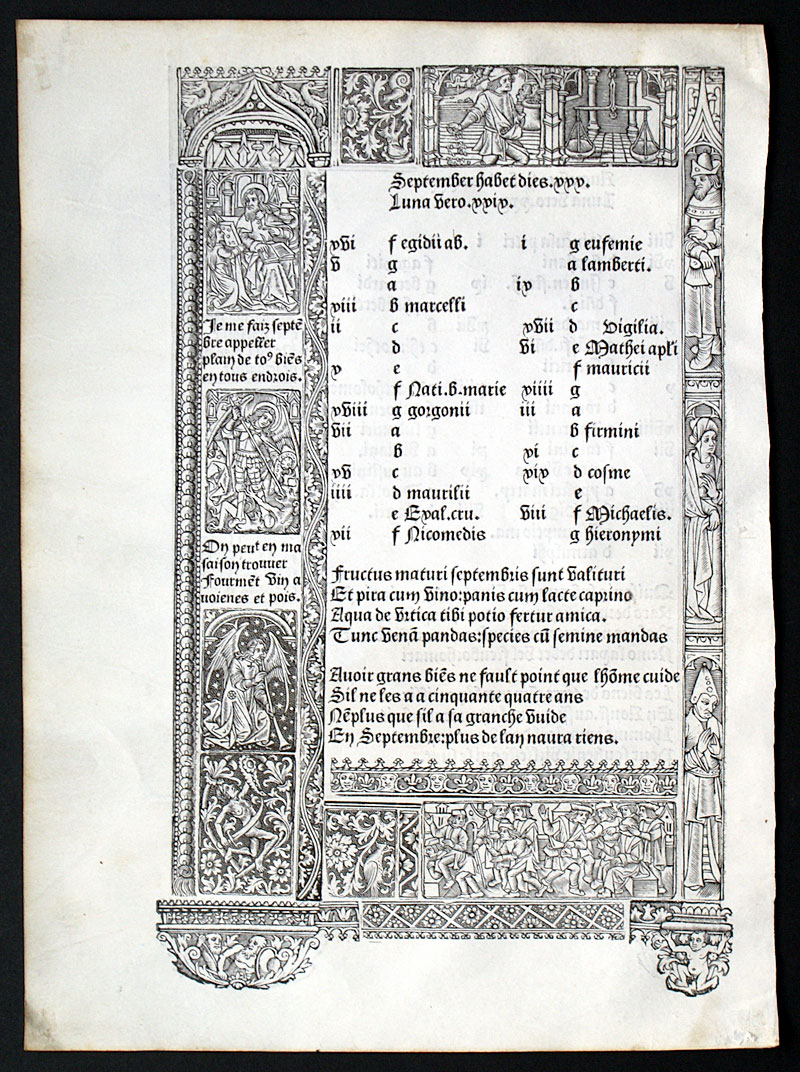 September habet dies.xxx.
Luna vero.xxix.
xvi f egidii ab.
v g
a
xiii b marcelli
ii c
d
x e
f Nati.b.marie
xviii g gorgonii
vii a
b
xv c
iiii d maurilii
e Exal.cru.
xii f Nicomedis
i g eufemie
a lamberti.
ix b
c
xvii d Vigilia.
vi e Mathei apłi
f mauricii
xiiii g
iii a
b firmini
xi c
xix d cosme
e
viii f Michaelis.
g hieronymi
Fructus maturi septembris sunt valituri
Et pira cum vino:panis cum lacte caprino
Aqua de vrtica tibi potio fertur amica.
Tunc venā pandas:species cū semine mandas
Avoir grans biēs ne fault point que lhōme cuide
Sil ne les a a cinquante quatre ans
Nēplus que sil a sa granche vuide
En Septembre:plus de lan naura riens.
Je me faiz septē
bre appeller
plain de toꝰ biēs
en tous endrois.
On peut en ma
saison trouver
Fourmēt vin a
voienes et pois.